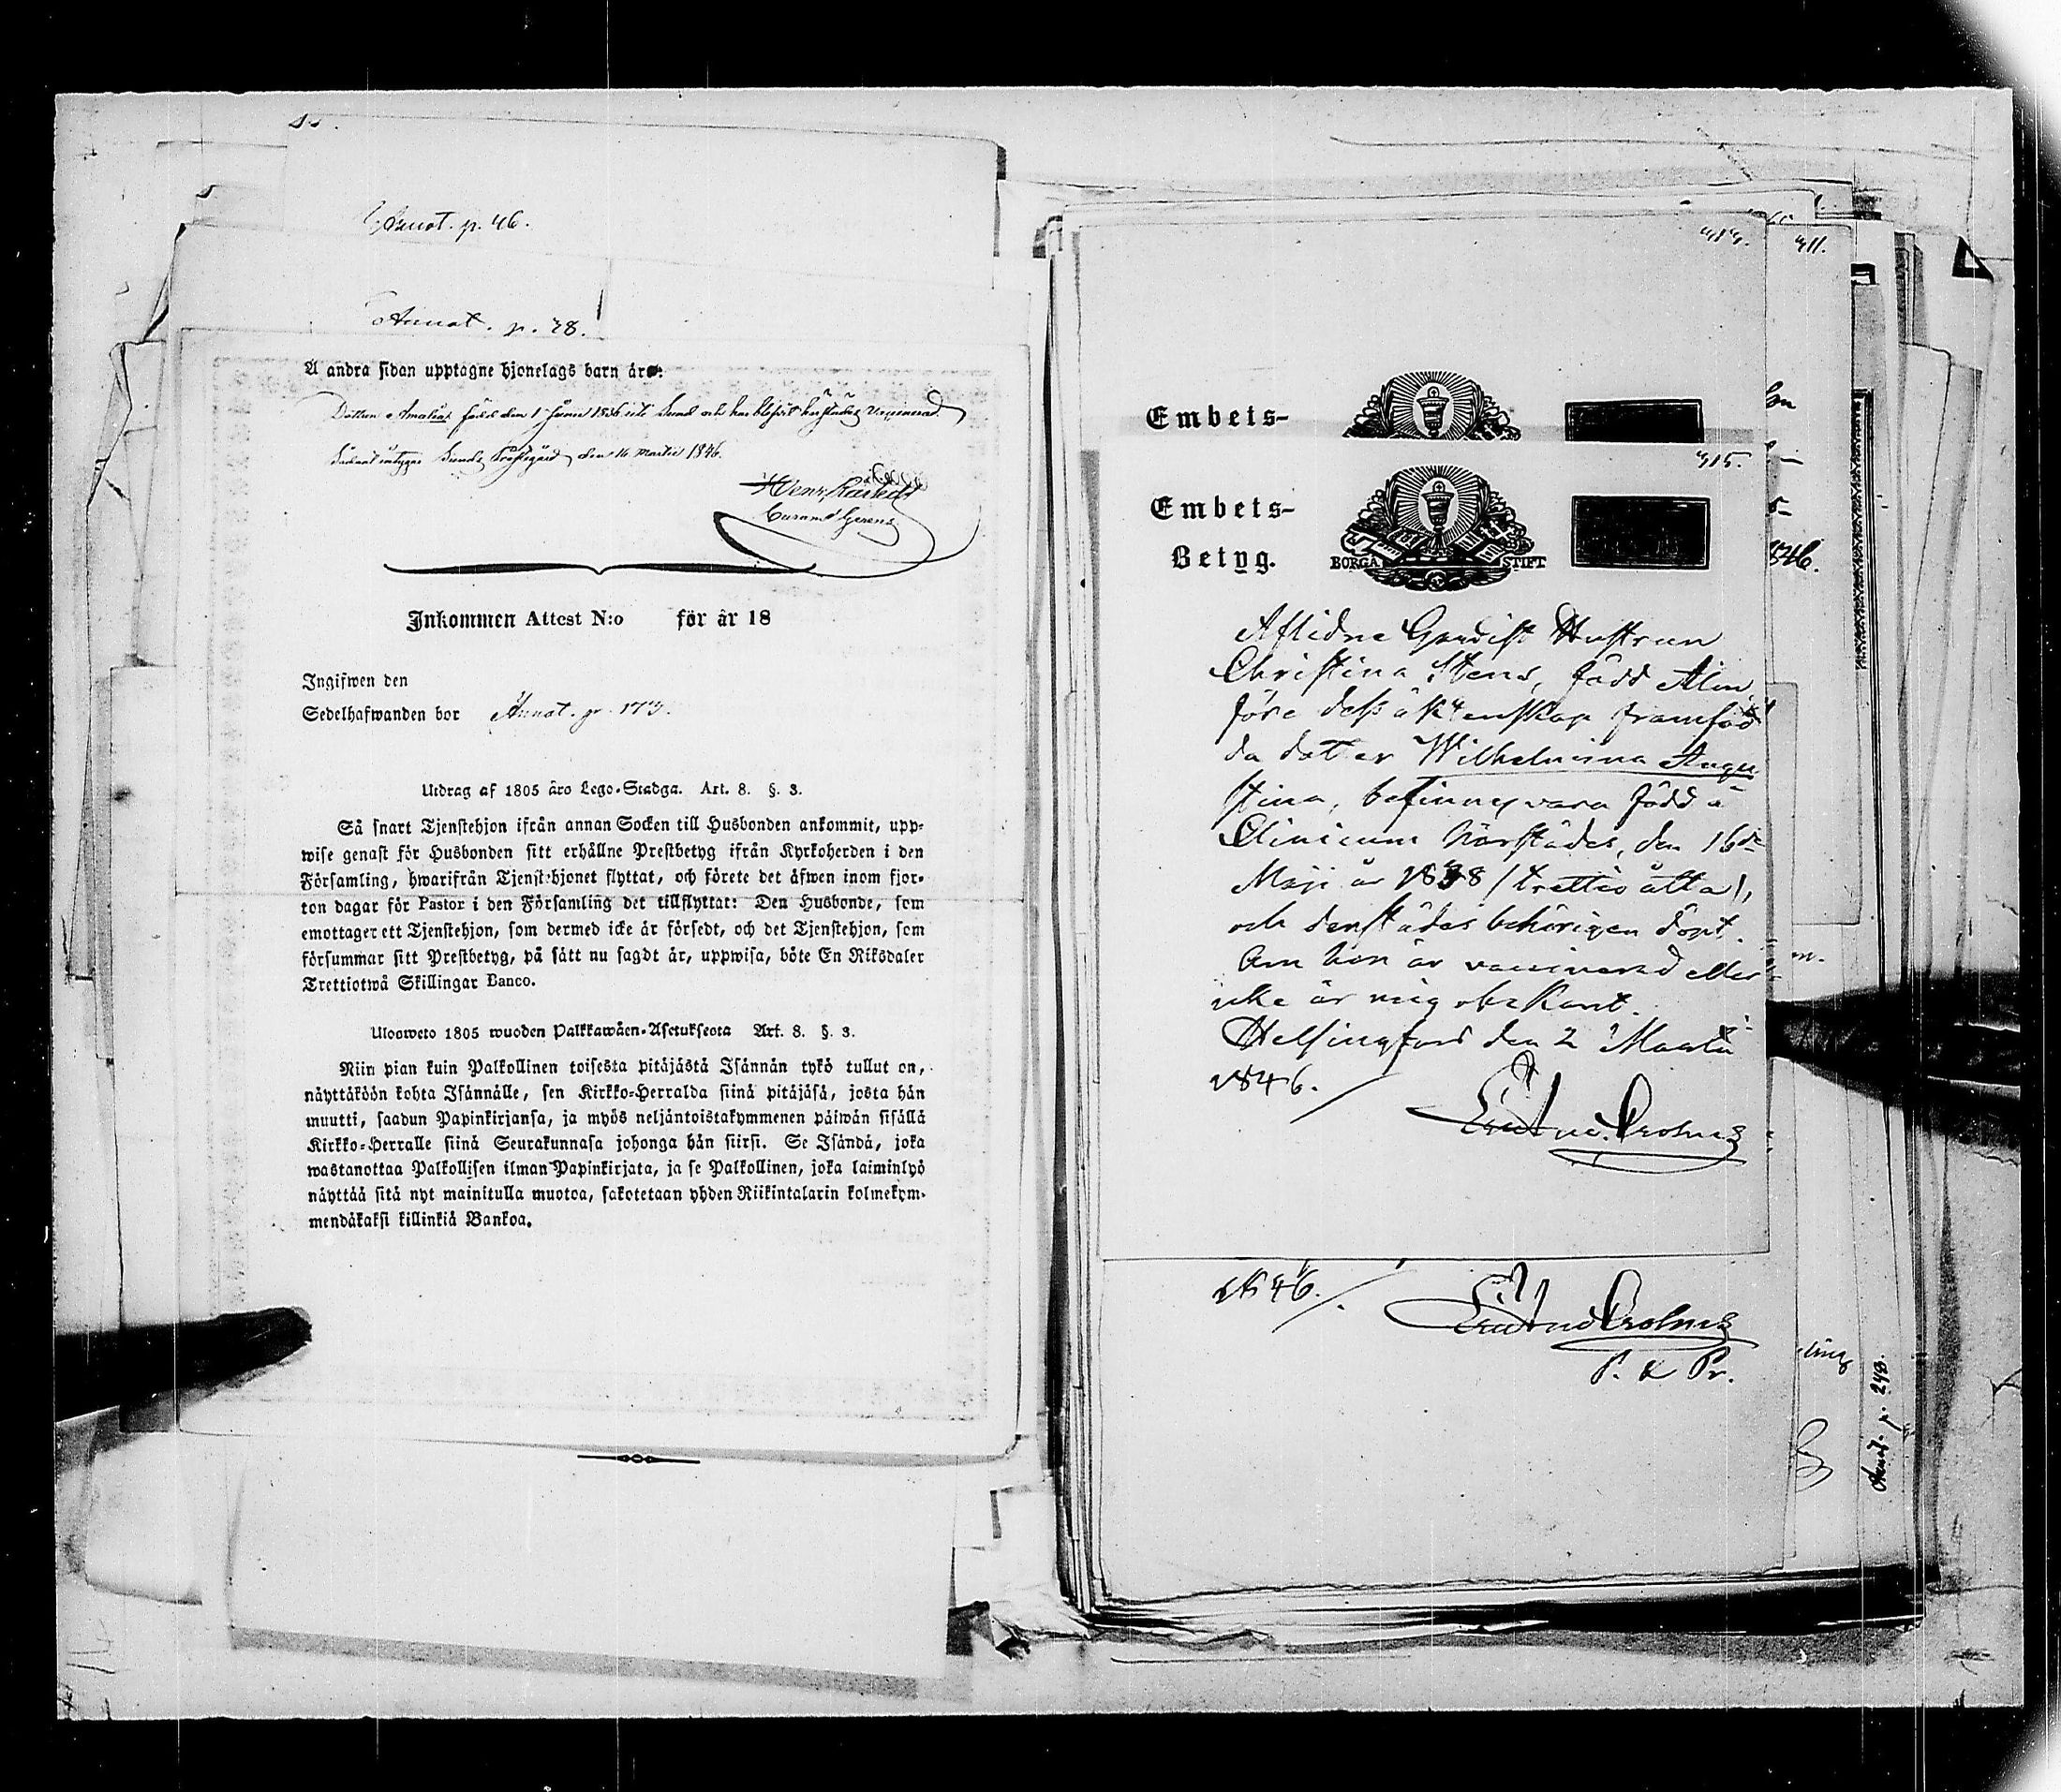 Annot. p. 46.
Annot. p. 78.
Å andra sidan upptagne hjonelags barn äro:
Dottren Amalia, född den 1 Junii 1836 uti Sund och har blifvit härstädes vaccinerad
Sådant intygar Sunds Prästgård den 16 Martii 1846.
Inkommen Attest N:o för år 18
Ingifwen den
Sedelhafwanden bor Annot. p. 173.
Utdrag af 1805 års Lego-Stadga. Art. 8. §. 3.
Så snart Tjenstehjon ifrån annan Socken till Husbonden ankommit, upp-
wise genast för Husbonden sitt erhållne Prestbetyg ifrån Kyrkoherden i den
Församling, hwarifrån Tjenstehjonet flyttat, och förete det äfwen inom fjor-
ton dagar för Pastor i den Församling det tillflyttat: Den Husbonde, som
emottager ett Tjenstehjon, som dermed icke är försedt, och det Tjenstehjon, som
försummar sitt Prestbetyg, på sätt nu sagdt är, uppwisa, böte En Riksdaler
Trettiotwå Skillingar Banco.
Ulosweto 1805 wuoden Palkkawäen-Asetuksesta Art. 8. §. 3.
Niin pian kuin Palkollinen toisesta pitäjästä Isännän tykö tullut on,
näyttäköön kohta Isännälle, sen Kirkko-Herralda siinä pitäjäsä, josta hän
muutti, saadun Papinkirjansa, ja myös neljäntoistakymmenen päiwän sisällä
Kirkko-Herralle siinä Seurakunnasa johonga hän siirsi. Se Isändä, joka
wastanottaa Palkollisen ilman Papinkirjata, ja se Palkollinen, joka laiminlyö
näyttää sitä nyt mainitulla muotoa, sakotetaan yhden Riikintalarin kolmekym-
mendäkaksi killinkiä Bankoa.
313.
311.
Embets-
315.
Embets-
Betyg.
BORGÅ STIFT
Aflidne Gardist Hustrun
Christina Stens, född Alm,
före dess äktenskap framföd
da dotter Wilhelmina Augu
stina, befinnes vara född å
Clinicum härstädes, den 16de
Maji år 1838 (trettio åtta),
och derstädes behörigen döpt.
Om hon är vaccinerad eller
icke är mig obekant.
Helsingfors den 2 Martii
1846.
1846.
P. L. Pr.
346.
Annot. p. 248.